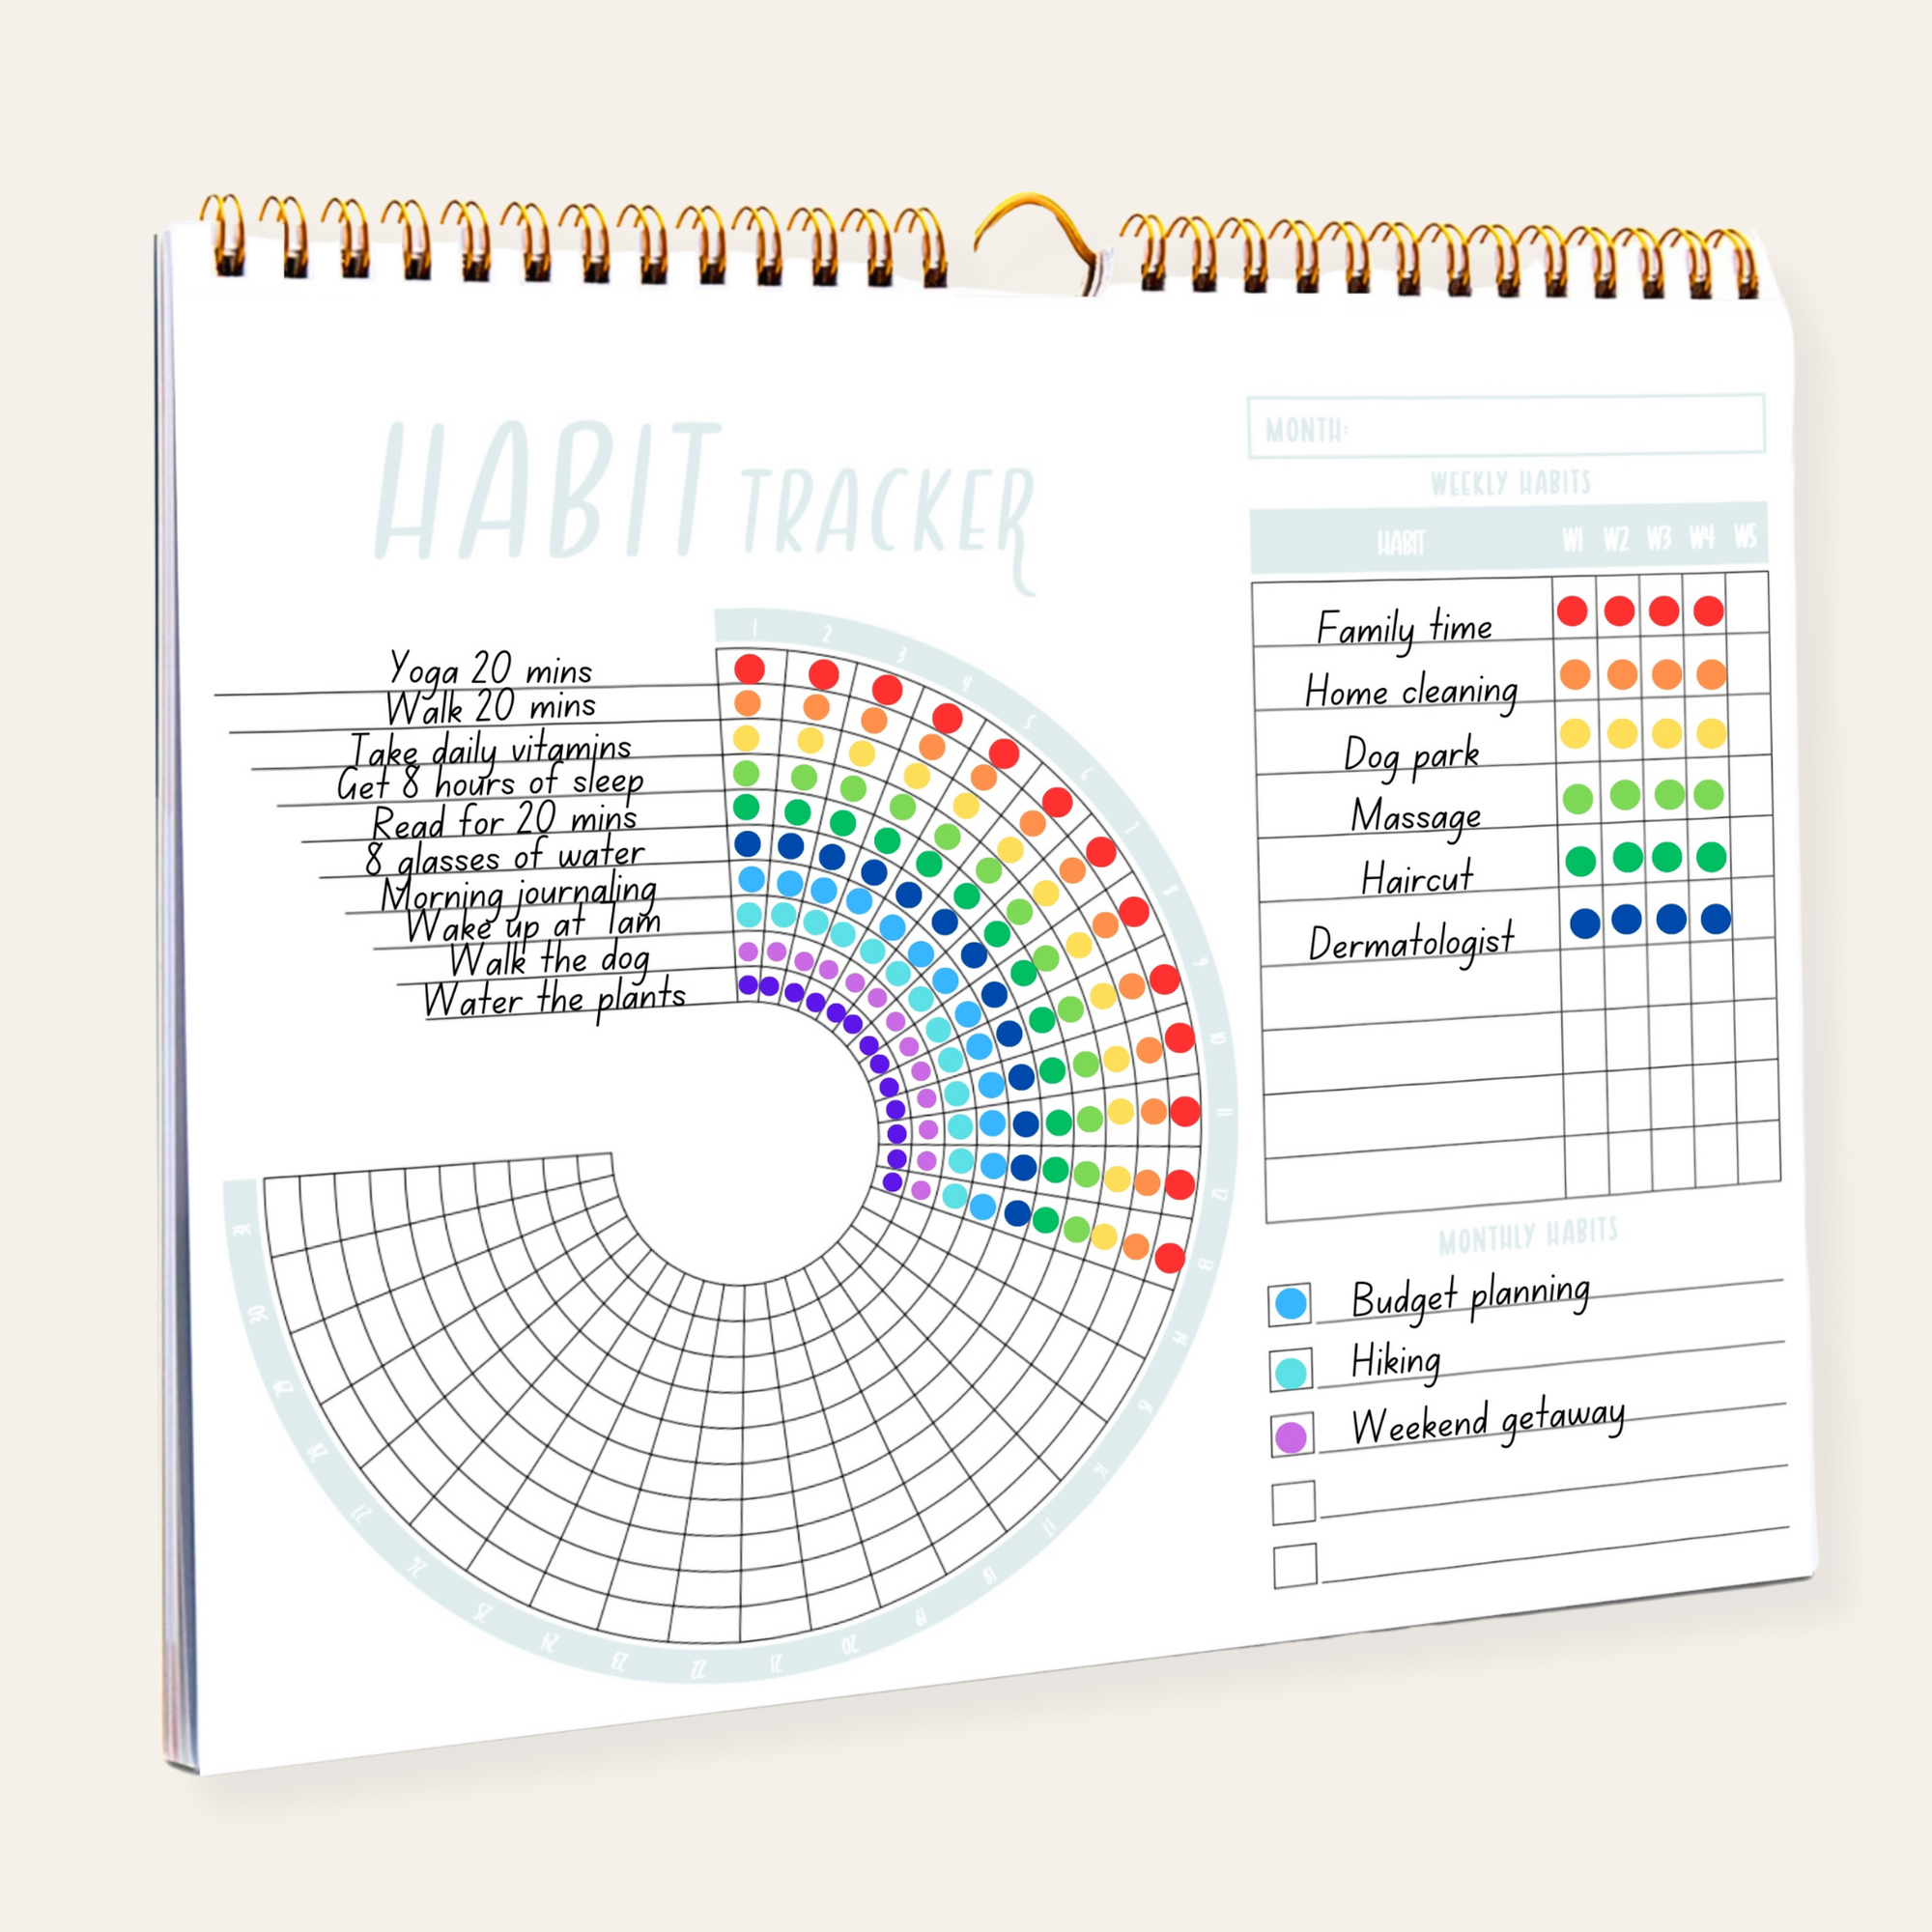 HABIT TRACKER
Yoga 20 mins
Walk 20 mins
Take daily vitamins
Get 8 hours of sleep
Read for 20 mins
8 glasses of water
Morning journaling
Wake up at 7am
Walk the dog
Water the plants
1
2
3
4
5
6
7
8
9
10
11
12
13
14
15
16
17
18
19
20
21
22
23
24
25
26
27
28
29
30
31
MONTH:
WEEKLY HABITS
HABIT W1 W2 W3 W4 W5
Family time
Home cleaning
Dog park
Massage
Haircut
Dermatologist
MONTHLY HABITS
Budget planning
Hiking
Weekend getaway